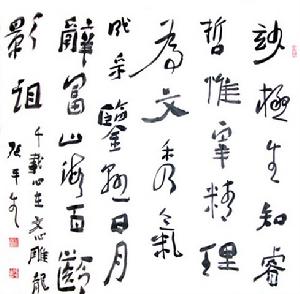 妙極生知睿
哲惟宰精理
為文秀氣
成采鑒懸日月
辭富山海百齡
影徂
千載心在文心雕龍